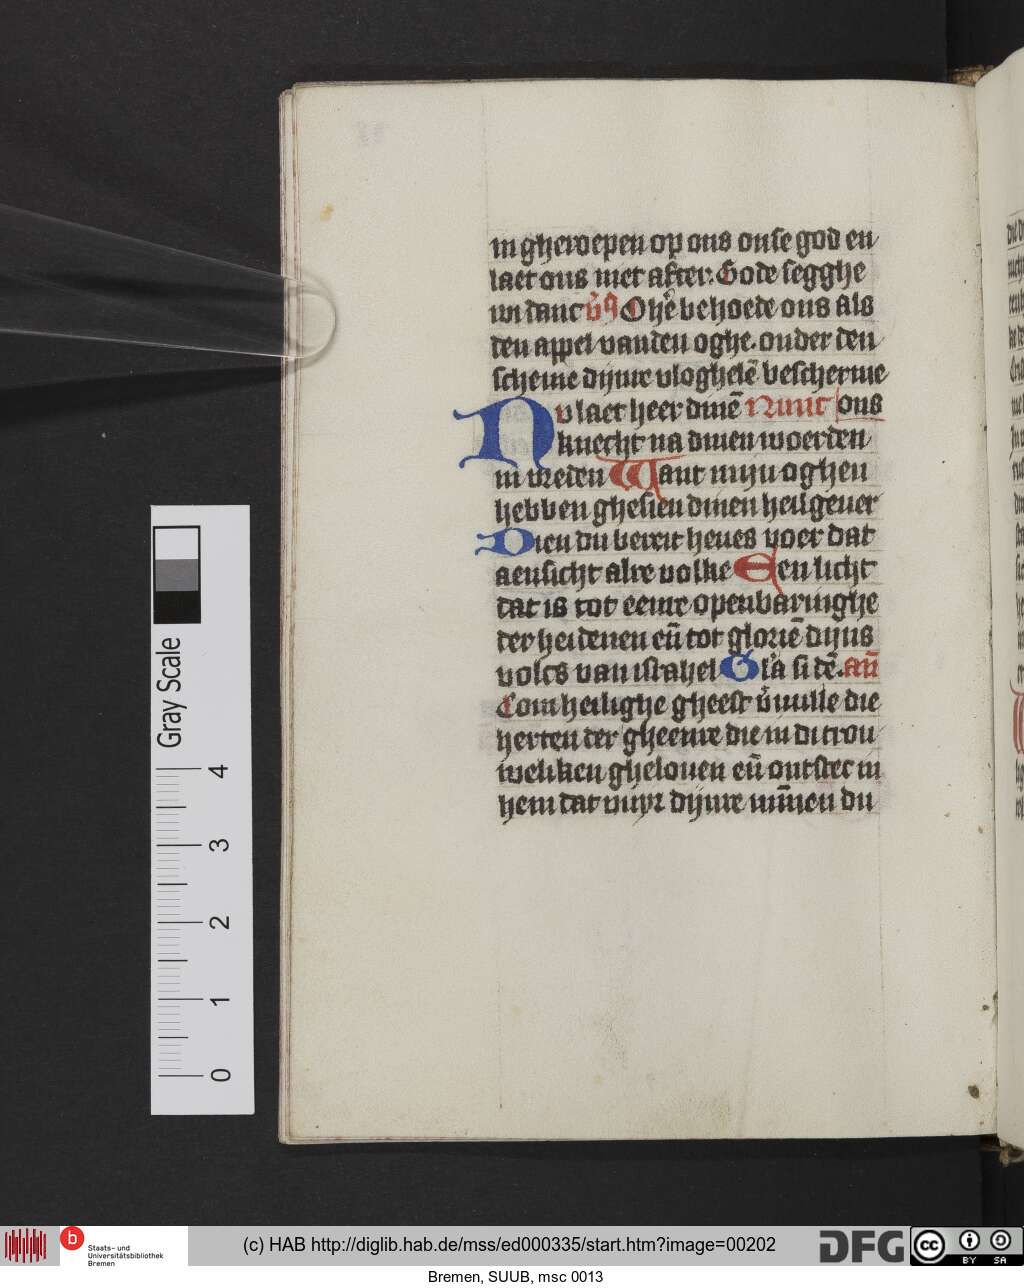 in gheroepen op ons onse god en
laet ons niet after. Gode segghe
wi danc v̄s O hẽ behoede ons als
den appel vanden oghe. onder den
scheme dijnre vloghelē bescherme
Nv laet heer dinē Nunc ons
knecht na dinen woerden
in vreden Want mijn oghen
hebben ghesien dinen heilgeuer
Dien du bereit heues voer dat
aensicht alre volke Een licht
dat is tot eenre openbaringhe
der heidenen eñ tot gloriē dijns
volcs van israhel Glã si dē. añ
Com heilighe gheest v̄uulle die
herten der gheenre die in di trou
weliken ghelouen eñ ontstec in
hem dat vuyr dijnre mīnen du
Gray Scale
4
3
2
1
0
b Staats- und
Universitätsbibliothek
Bremen
(c) HAB http://diglib.hab.de/mss/ed000335/start.htm?image=00202
DFG
cc BY SA
Bremen, SUUB, msc 0013